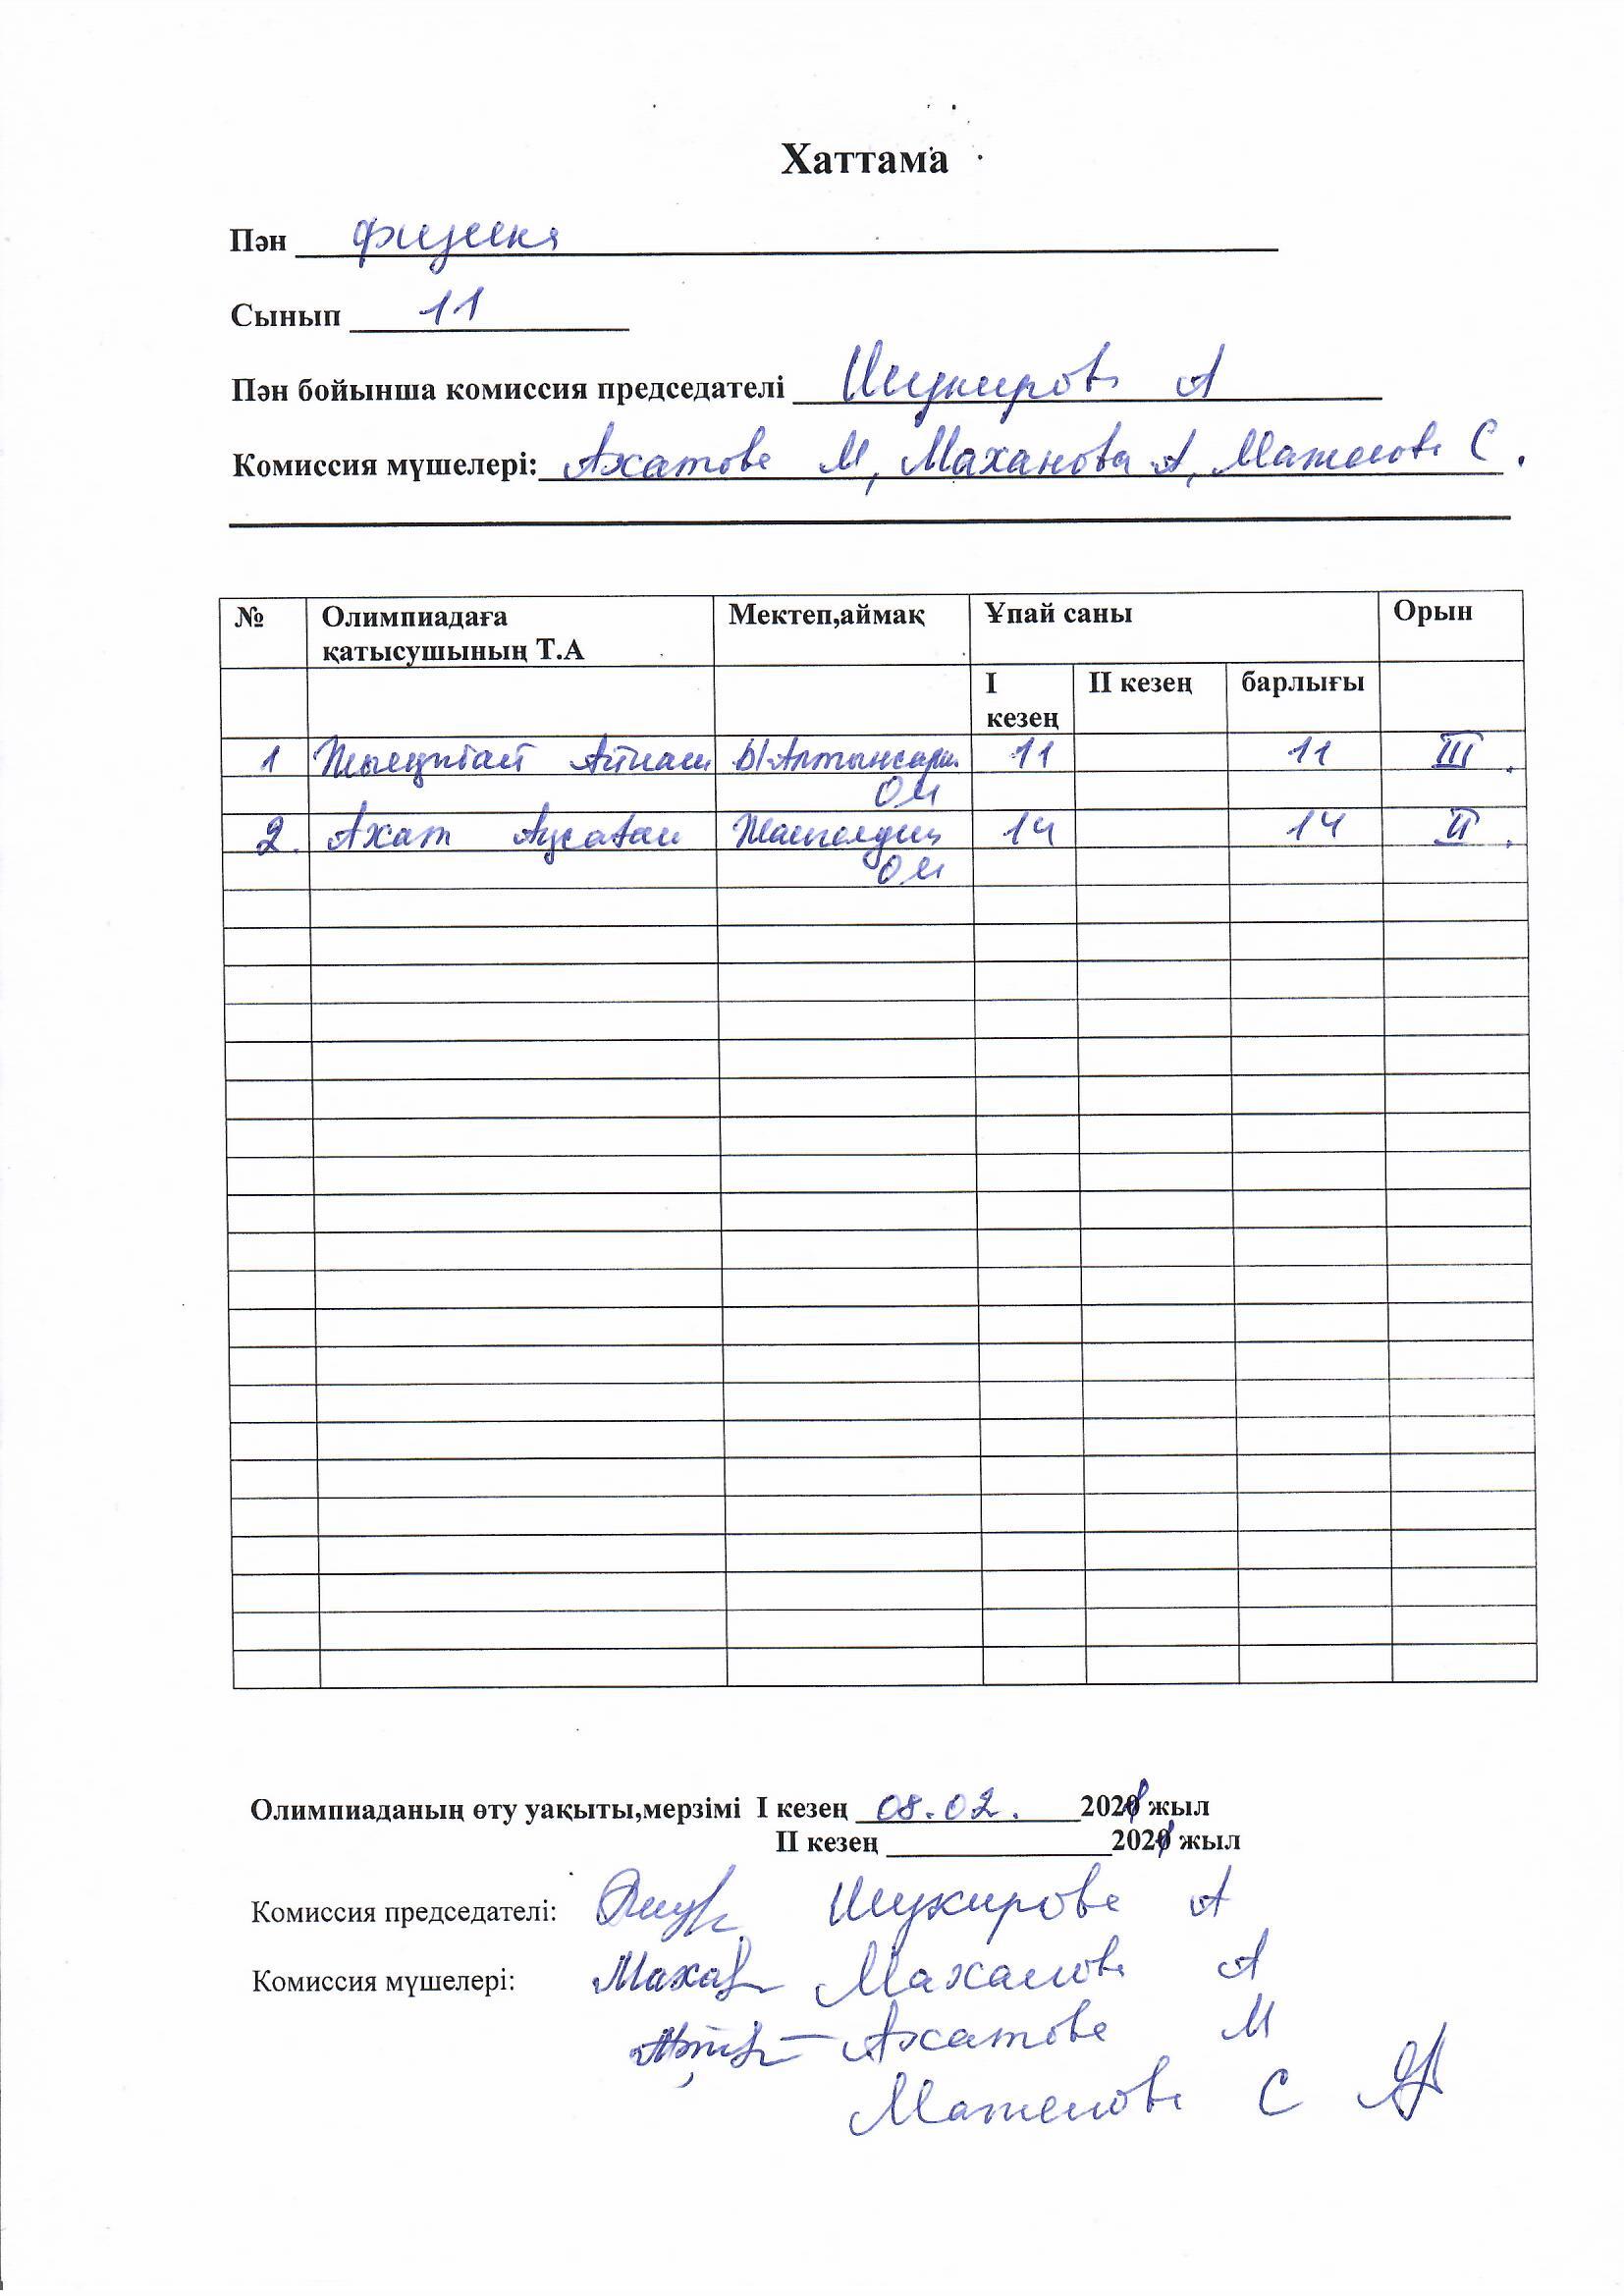 Хаттама
Пән физика
Сынып 11
Пән бойынша комиссия председателі Шукирова А
Комиссия мүшелері: Ахатова М, Маханова А, Матенова С.
№ Олимпиадаға қатысушының Т.А Мектеп,аймақ Ұпай саны Орын
I кезең II кезең барлығы
1 Ы.Алтынсари. ОМ 11 11 III
2. Ахат ОМ 14 14 II
Олимпиаданың өту уақыты,мерзімі I кезең 08.02. 2021 жыл
II кезең 2021 жыл
Комиссия председателі: Шукирова А
Комиссия мүшелері: Маханова А
Ахатова М
Матенова С